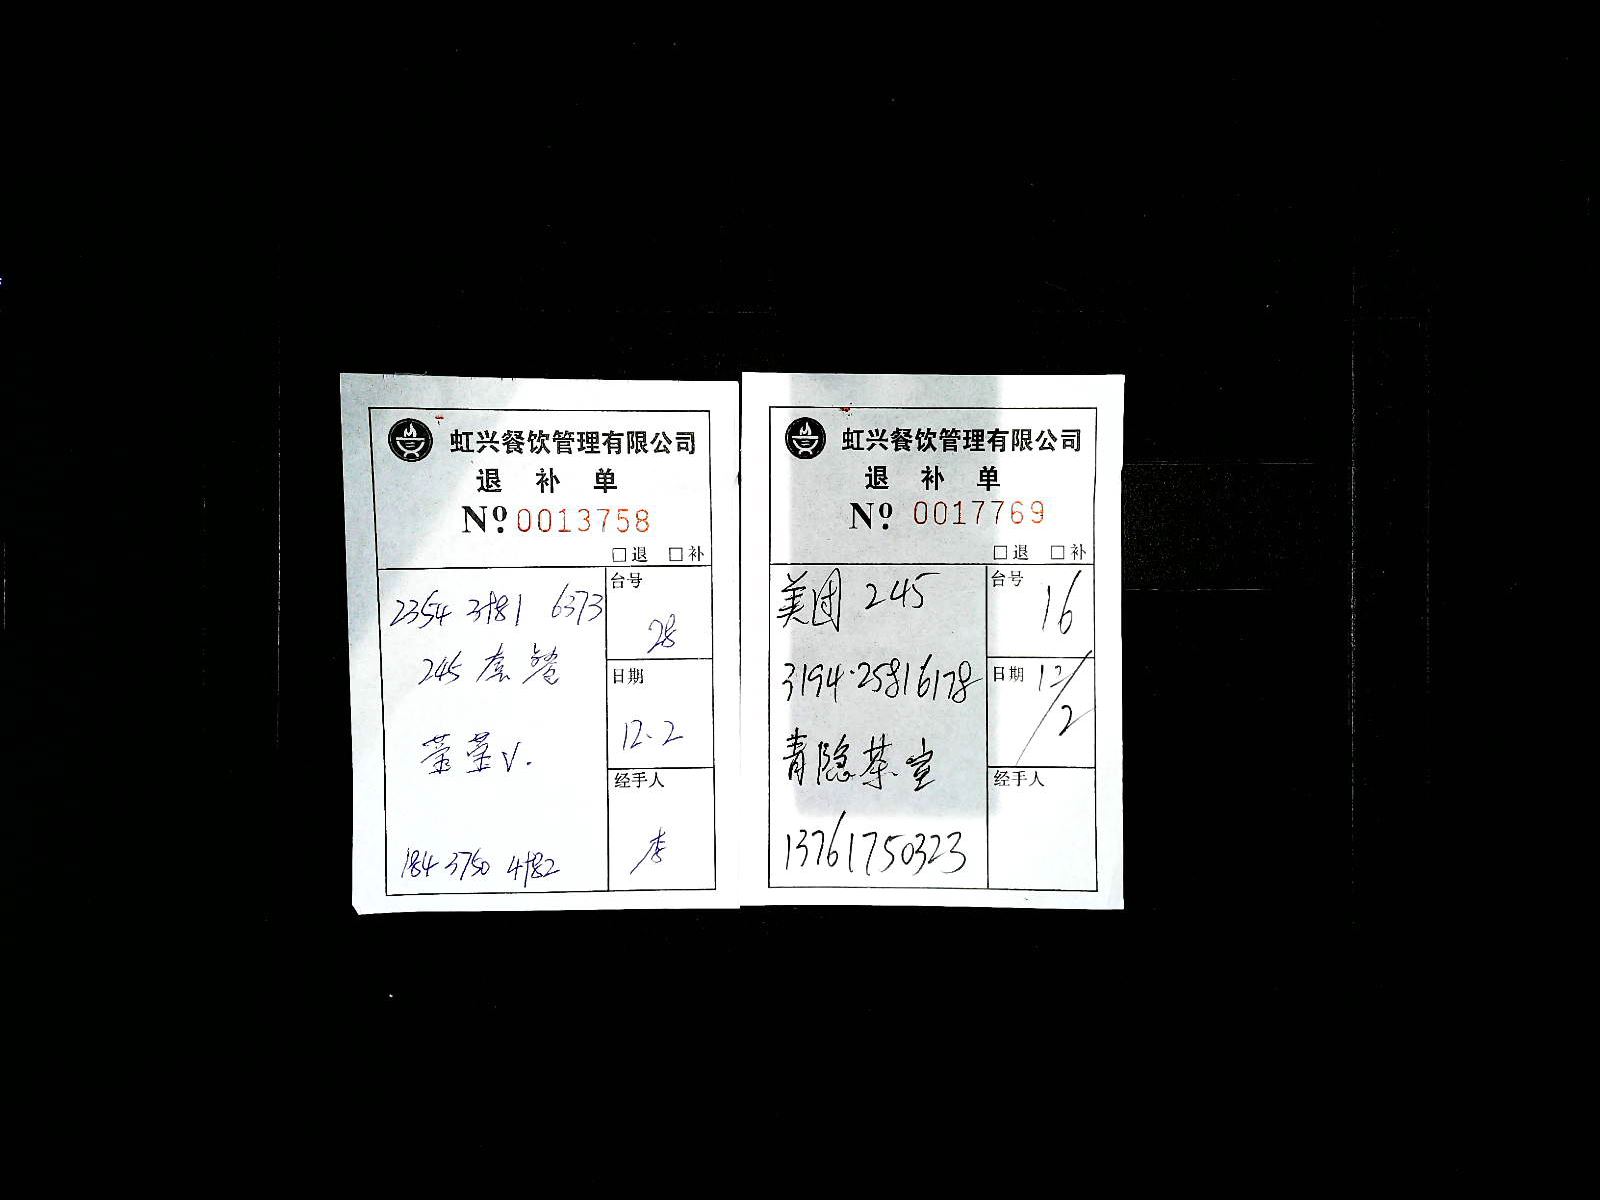 虹兴餐饮管理有限公司
退 补 单
Nº 0013758
□退 □补
2354 3181 6373
245 套餐
V.
184 3750 4182
台号
28
日期
12.2
经手人
李
虹兴餐饮管理有限公司
退 补 单
Nº 0017769
□退 □补
美团 245
3194·25816178
青隐茶室
13761750323
台号
16
日期
12/2
经手人